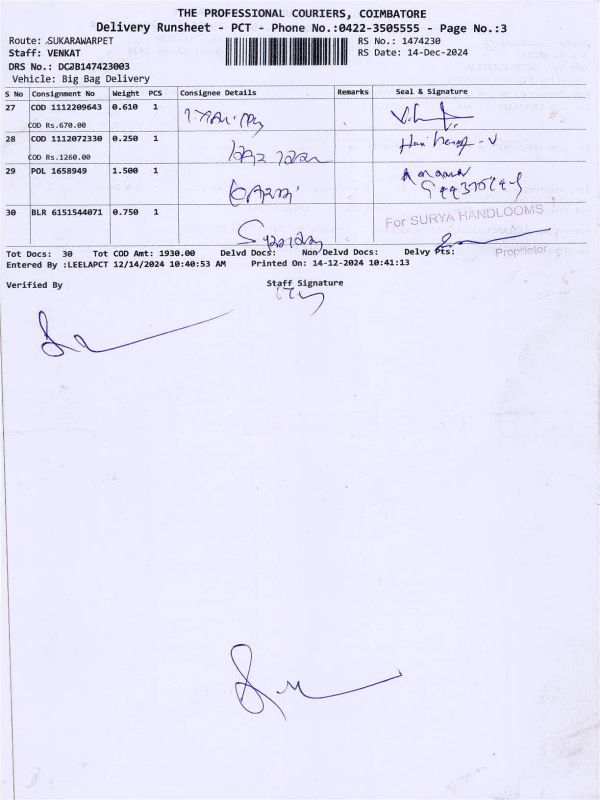 THE PROFESSIONAL COURIERS, COIMBATORE
Delivery Runsheet - PCT - Phone No.:0422-3505555 - Page No.:3
Route: SUKARAWARPET
RS No.: 1474230
Staff: VENKAT
RS Date: 14-Dec-2024
DRS No.: DCJB147423003
Vehicle: Big Bag Delivery
S No Consignment No Weight PCS Consignee Details Remarks Seal & Signature
27 COD 1112209643 0.610 1
COD Rs.670.00
28 COD 1112072330 0.250 1
COD Rs.1260.00
29 POL 1658949 1.500 1
30 BLR 6151544071 0.750 1
For SURYA HANDLOOMS
Proprietor
Tot Docs: 30 Tot COD Amt: 1930.00 Delvd Docs: Non Delvd Docs: Delvy Pts:
Entered By :LEELAPCT 12/14/2024 10:40:53 AM Printed On: 14-12-2024 10:41:13
Verified By Staff Signature